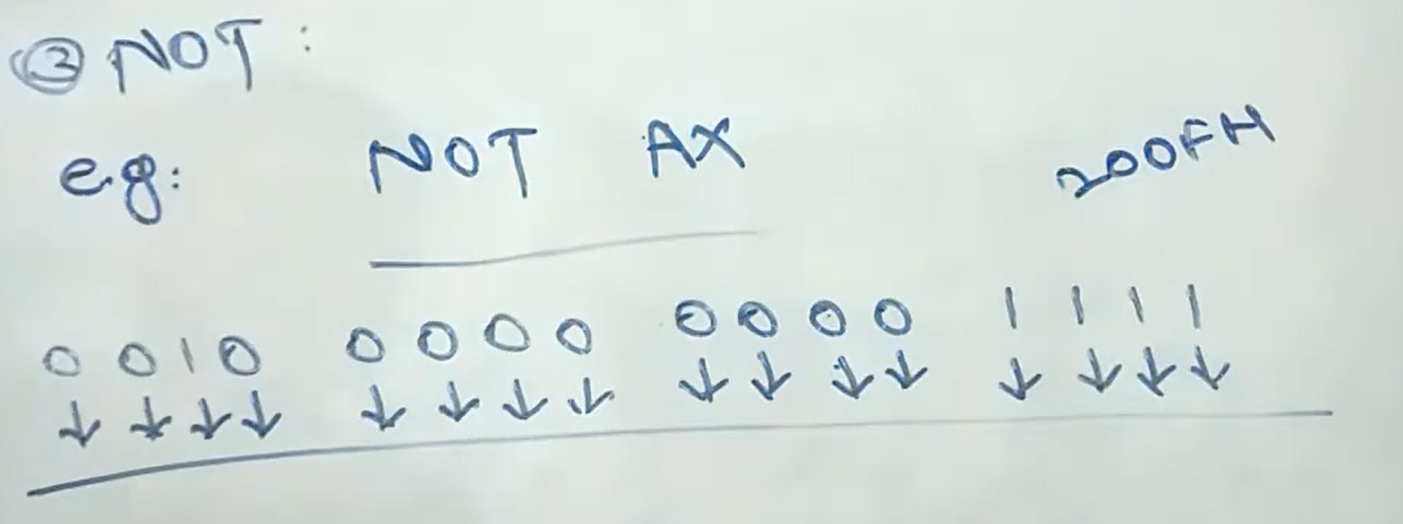 ③ NOT :
e.g: NOT AX 200FH
0 0 1 0 0 0 0 0 0 0 0 0 1 1 1 1
↓ ↓ ↓ ↓ ↓ ↓ ↓ ↓ ↓ ↓ ↓ ↓ ↓ ↓ ↓ ↓